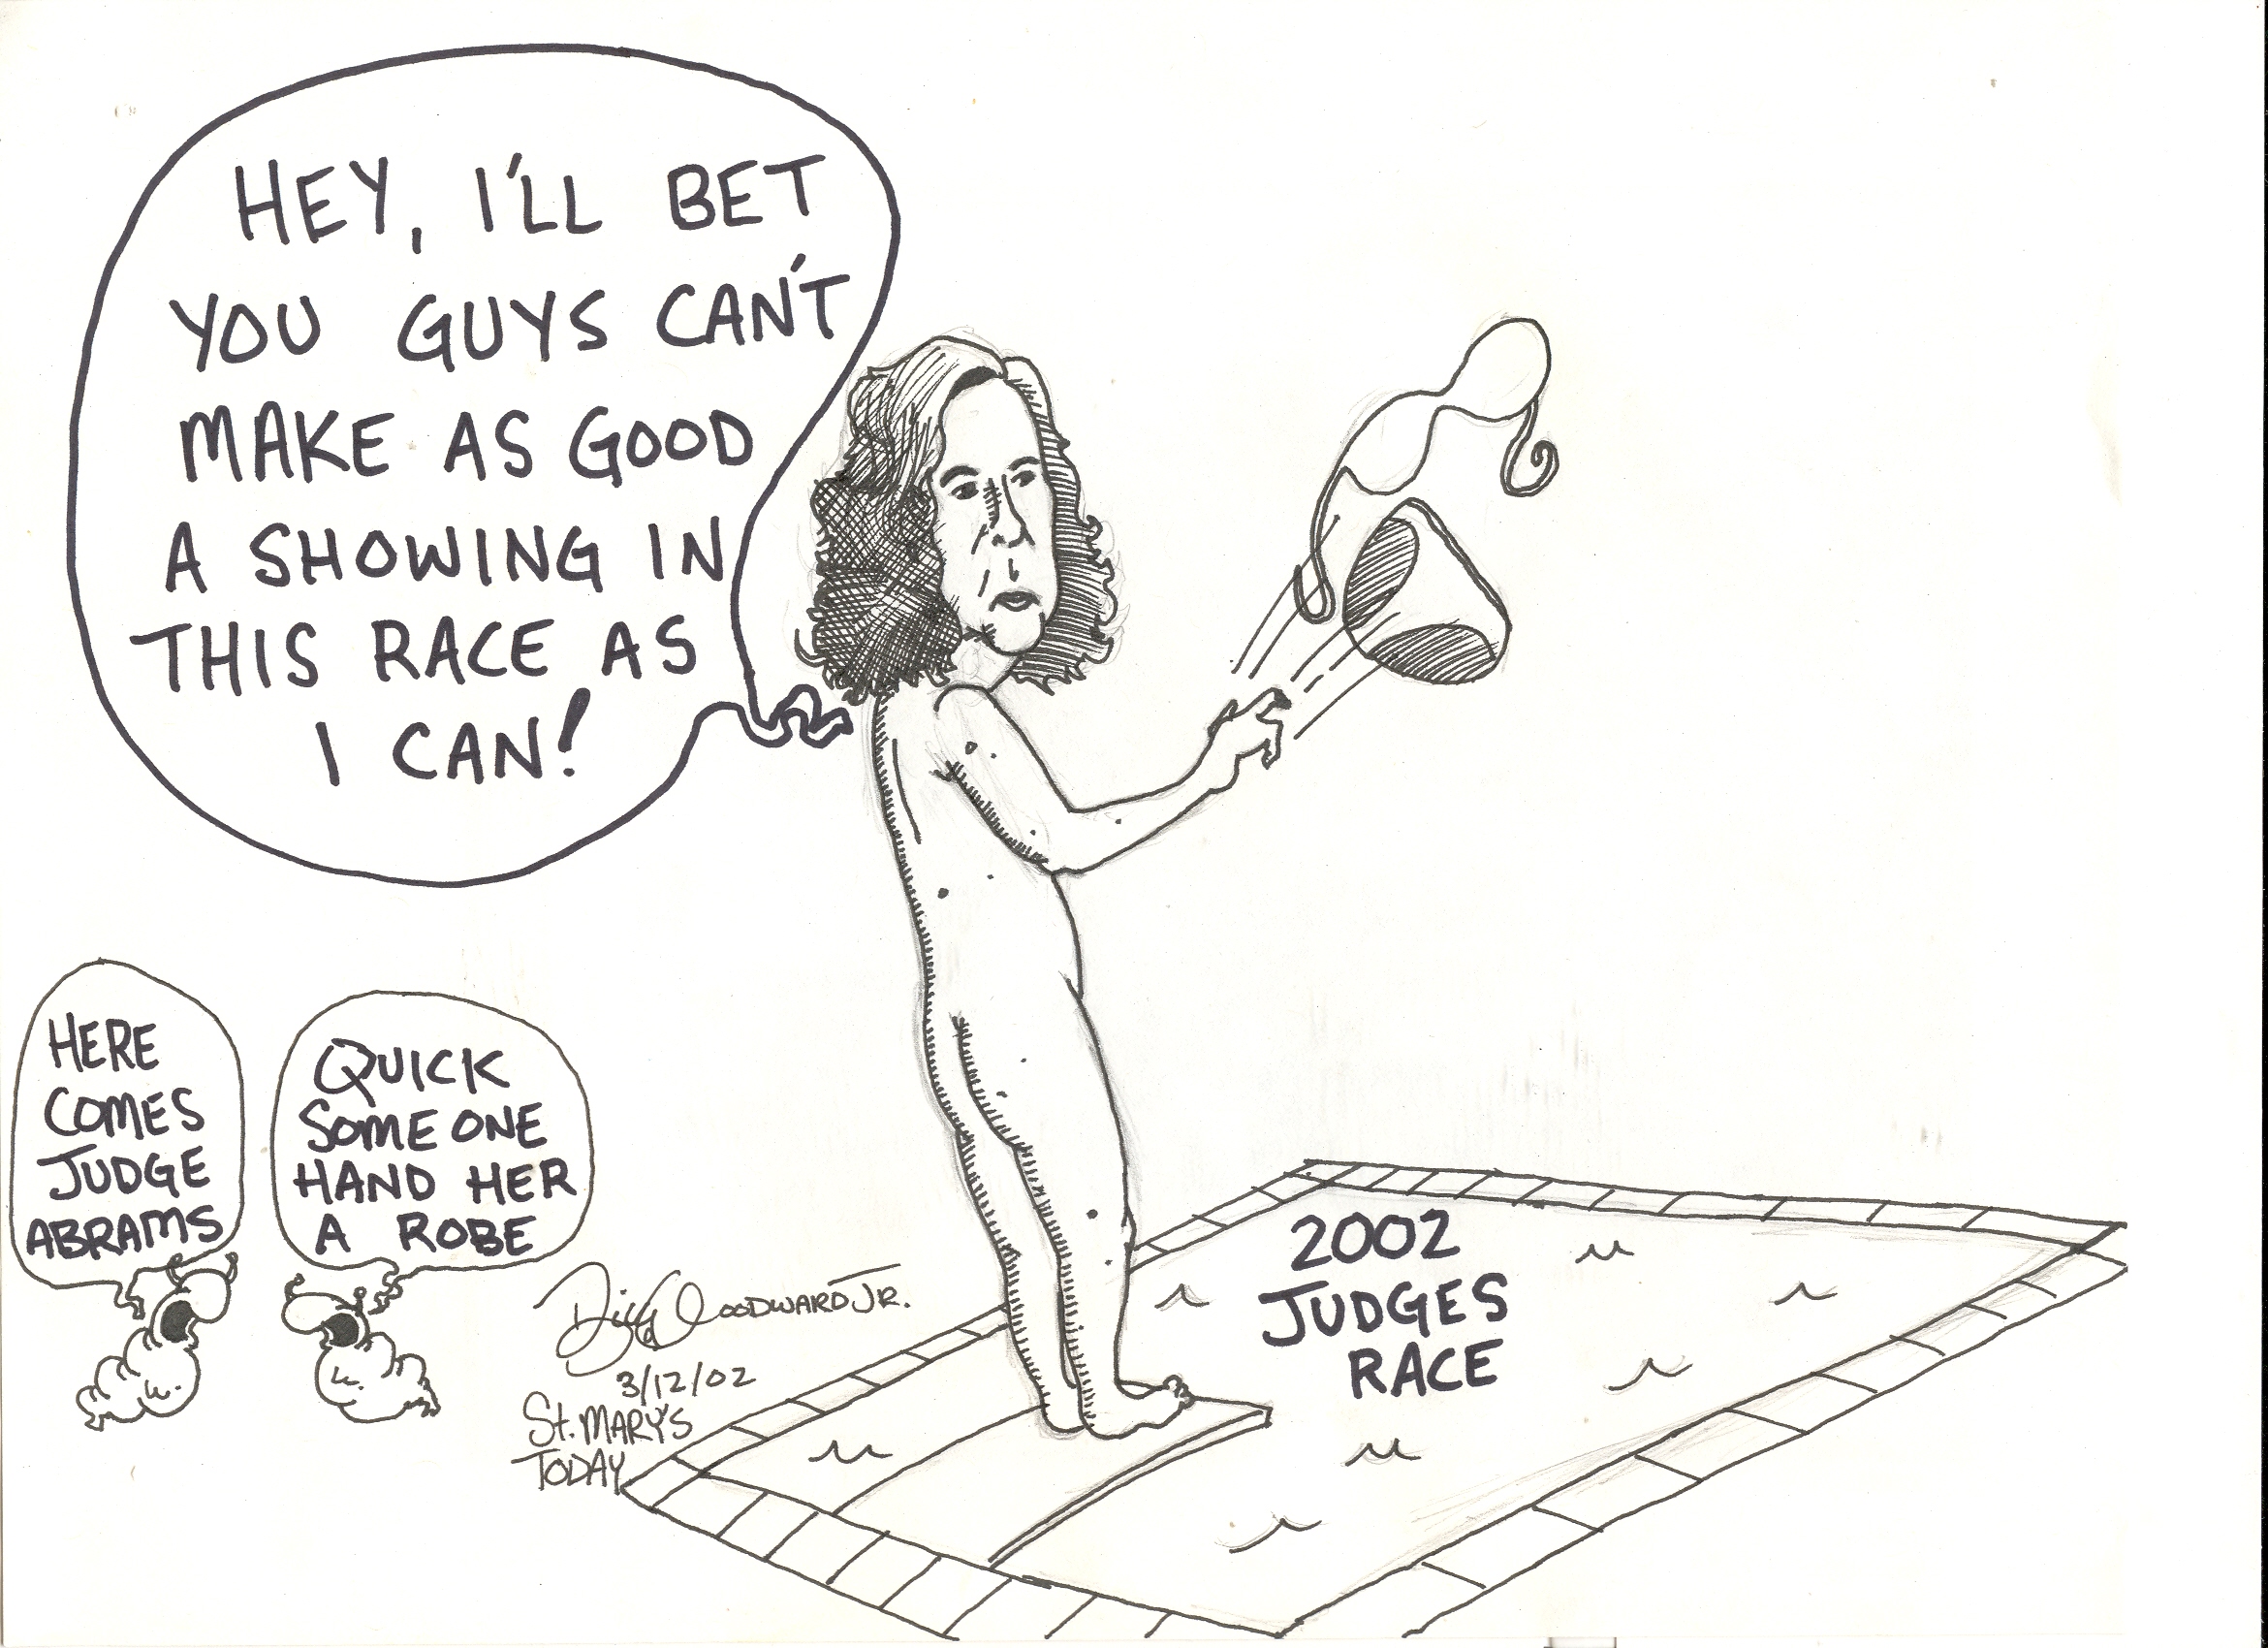 HEY, I'LL BET
YOU GUYS CAN'T
MAKE AS GOOD
A SHOWING IN
THIS RACE AS
I CAN!
HERE
COMES
JUDGE
ABRAMS
QUICK
SOME ONE
HAND HER
A ROBE
2002
JUDGES
RACE
Dick WOODWARD JR.
3/12/02
St. MARY'S
TODAY